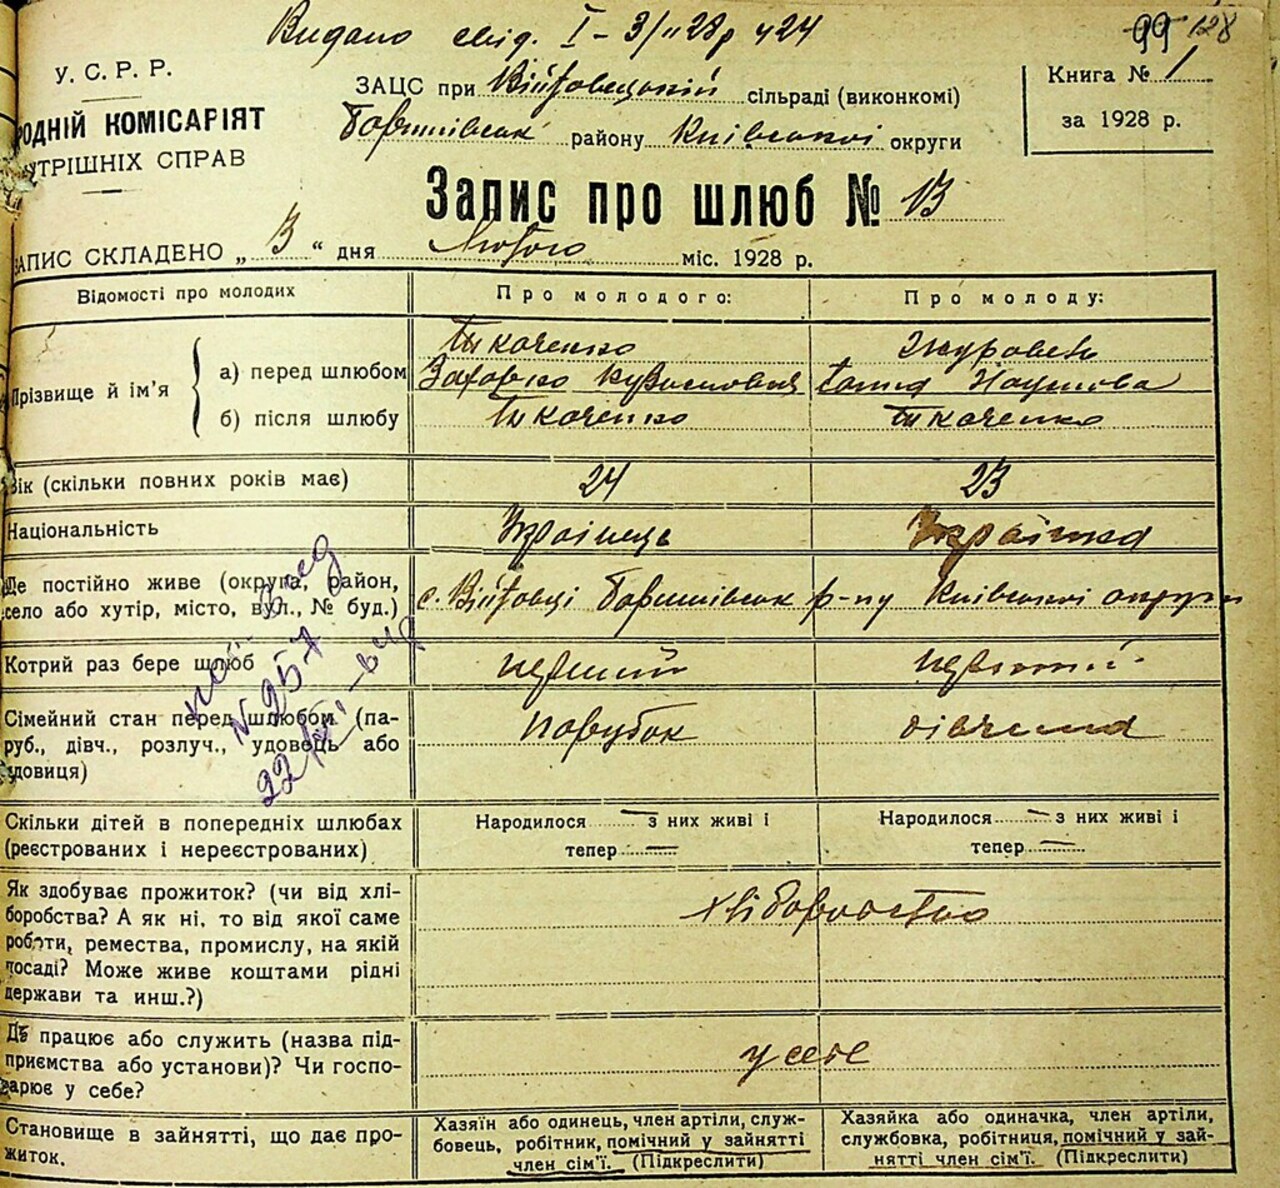 Видано свід. I – 3/II 28р ч 24
99 128
У. С. Р. Р.
РОДНІЙ КОМІСАРІЯТ
УТРІШНІХ СПРАВ
ЗАЦС при Війтовецькій сільраді (виконкомі)
Баришівськ району Київської округи
Книга № 1
за 1928 р.
Запис про шлюб № 13
ЗАПИС СКЛАДЕНО „ 3 “ дня Лютого міс. 1928 р.
Відомості про молодих
Про молодого:
Про молоду:
Прізвище й ім'я
а) перед шлюбом
Ткаченко
Журавель
Наумова
б) після шлюбу
Ткаченко
Ткаченко
Вік (скільки повних років має)
24
23
Національність
Українець
Українка
Де постійно живе (округа, район,
село або хутір, місто, вул., № буд.)
с. Війтовці Баришівськ р-ну Київської округи
Котрий раз бере шлюб
перший
перший
Сімейний стан перед шлюбом (па-
руб., дівч., розлуч., удовець або
удовиця)
парубок
дівчина
N 257
Скільки дітей в попередніх шлюбах
(реєстрованих і нереєстрованих)
Народилося — з них живі і
тепер —
Народилося — з них живі і
тепер —
Як здобуває прожиток? (чи від хлі-
боробства? А як ні, то від якої саме
роботи, ремества, промислу, на якій
посаді? Може живе коштами рідні
держави та инш.?)
хліборобство
Де працює або служить (назва під-
приємства або установи)? Чи госпо-
дарює у себе?
у себе
Становище в зайнятті, що дає про-
житок.
Хазяїн або одинець, член артіли, служ-
бовець, робітник, помічний у зайнятті
член сім'ї. (Підкреслити)
Хазяйка або одиначка, член артіли,
службовка, робітниця, помічний у зай-
нятті член сім'ї. (Підкреслити)